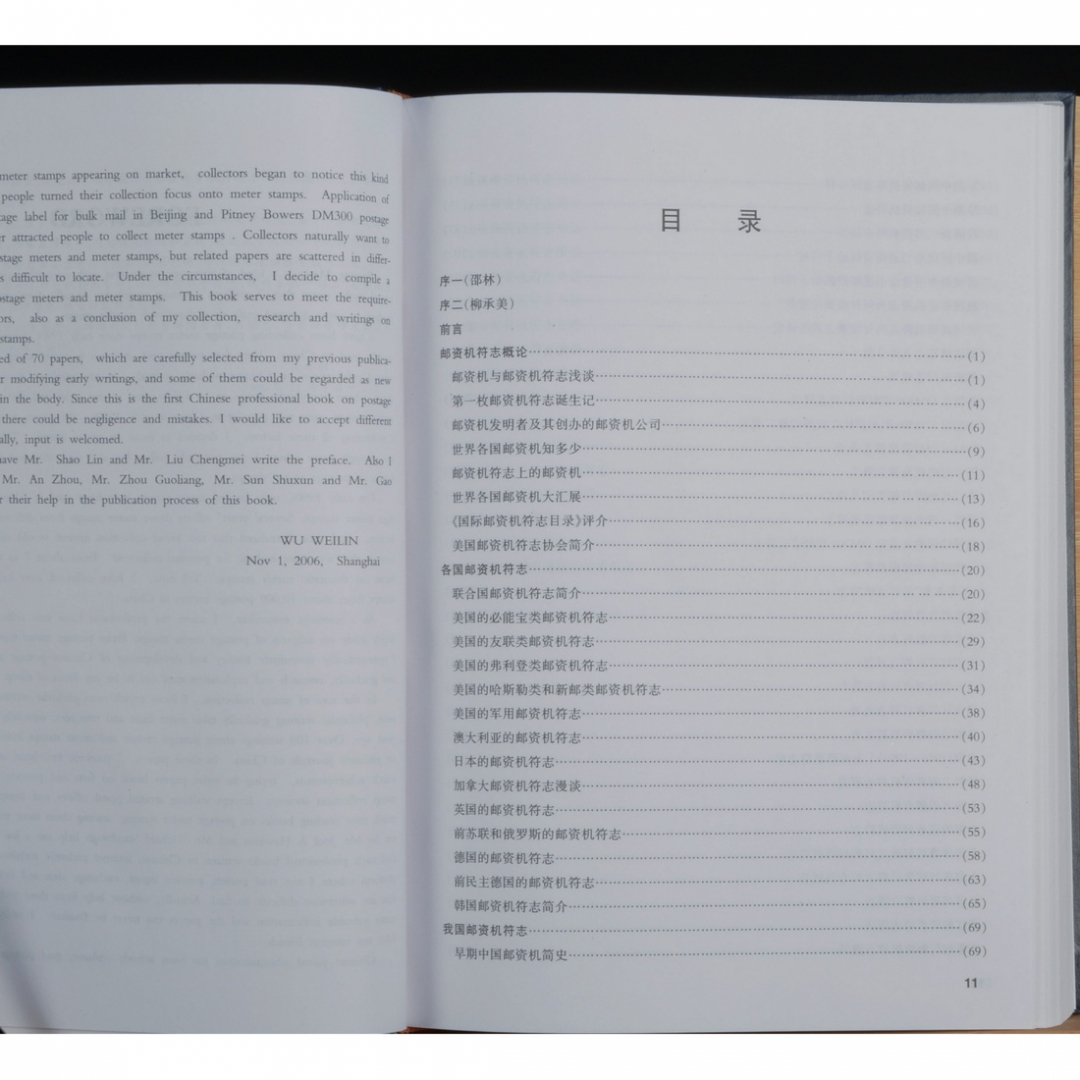 meter stamps appearing on market, collectors began to notice this kind
people turned their collection focus onto meter stamps. Application of
age label for bulk mail in Beijing and Pitney Bowers DM300 postage
r attracted people to collect meter stamps . Collectors naturally want to
stage meters and meter stamps, but related papers are scattered in differ-
s difficult to locate. Under the circumstances, I decide to compile a
ostage meters and meter stamps. This book serves to meet the require-
ors, also as a conclusion of my collection, research and writings on
stamps.
ed of 70 papers, which are carefully selected from my previous publica-
r modifying early writings, and some of them could be regarded as new
in the body. Since this is the first Chinese professional book on postage
there could be negligence and mistakes. I would like to accept different
ally, input is welcomed.
ave Mr. Shao Lin and Mr. Liu Chengmei write the preface. Also I
Mr. An Zhou, Mr. Zhou Guoliang, Mr. Sun Shuxun and Mr. Gao
r their help in the publication process of this book.
WU WEILIN
Nov 1, 2006, Shanghai
目 录
序一(邵林)
序二(柳承美)
前言
邮资机符志概论……(1)
邮资机与邮资机符志浅谈……(1)
第一枚邮资机符志诞生记……(4)
邮资机发明者及其创办的邮资机公司……(6)
世界各国邮资机知多少……(9)
邮资机符志上的邮资机……(11)
世界各国邮资机大汇展……(13)
《国际邮资机符志目录》评介……(16)
美国邮资机符志协会简介……(18)
各国邮资机符志……(20)
联合国邮资机符志简介……(20)
美国的必能宝类邮资机符志……(22)
美国的友联类邮资机符志……(29)
美国的弗利登类邮资机符志……(31)
美国的哈斯勒类和新邮类邮资机符志……(34)
美国的军用邮资机符志……(38)
澳大利亚的邮资机符志……(40)
日本的邮资机符志……(43)
加拿大邮资机符志漫谈……(48)
英国的邮资机符志……(53)
前苏联和俄罗斯的邮资机符志……(55)
德国的邮资机符志……(58)
前民主德国的邮资机符志……(63)
韩国邮资机符志简介……(65)
我国邮资机符志……(69)
早期中国邮资机简史……(69)
11